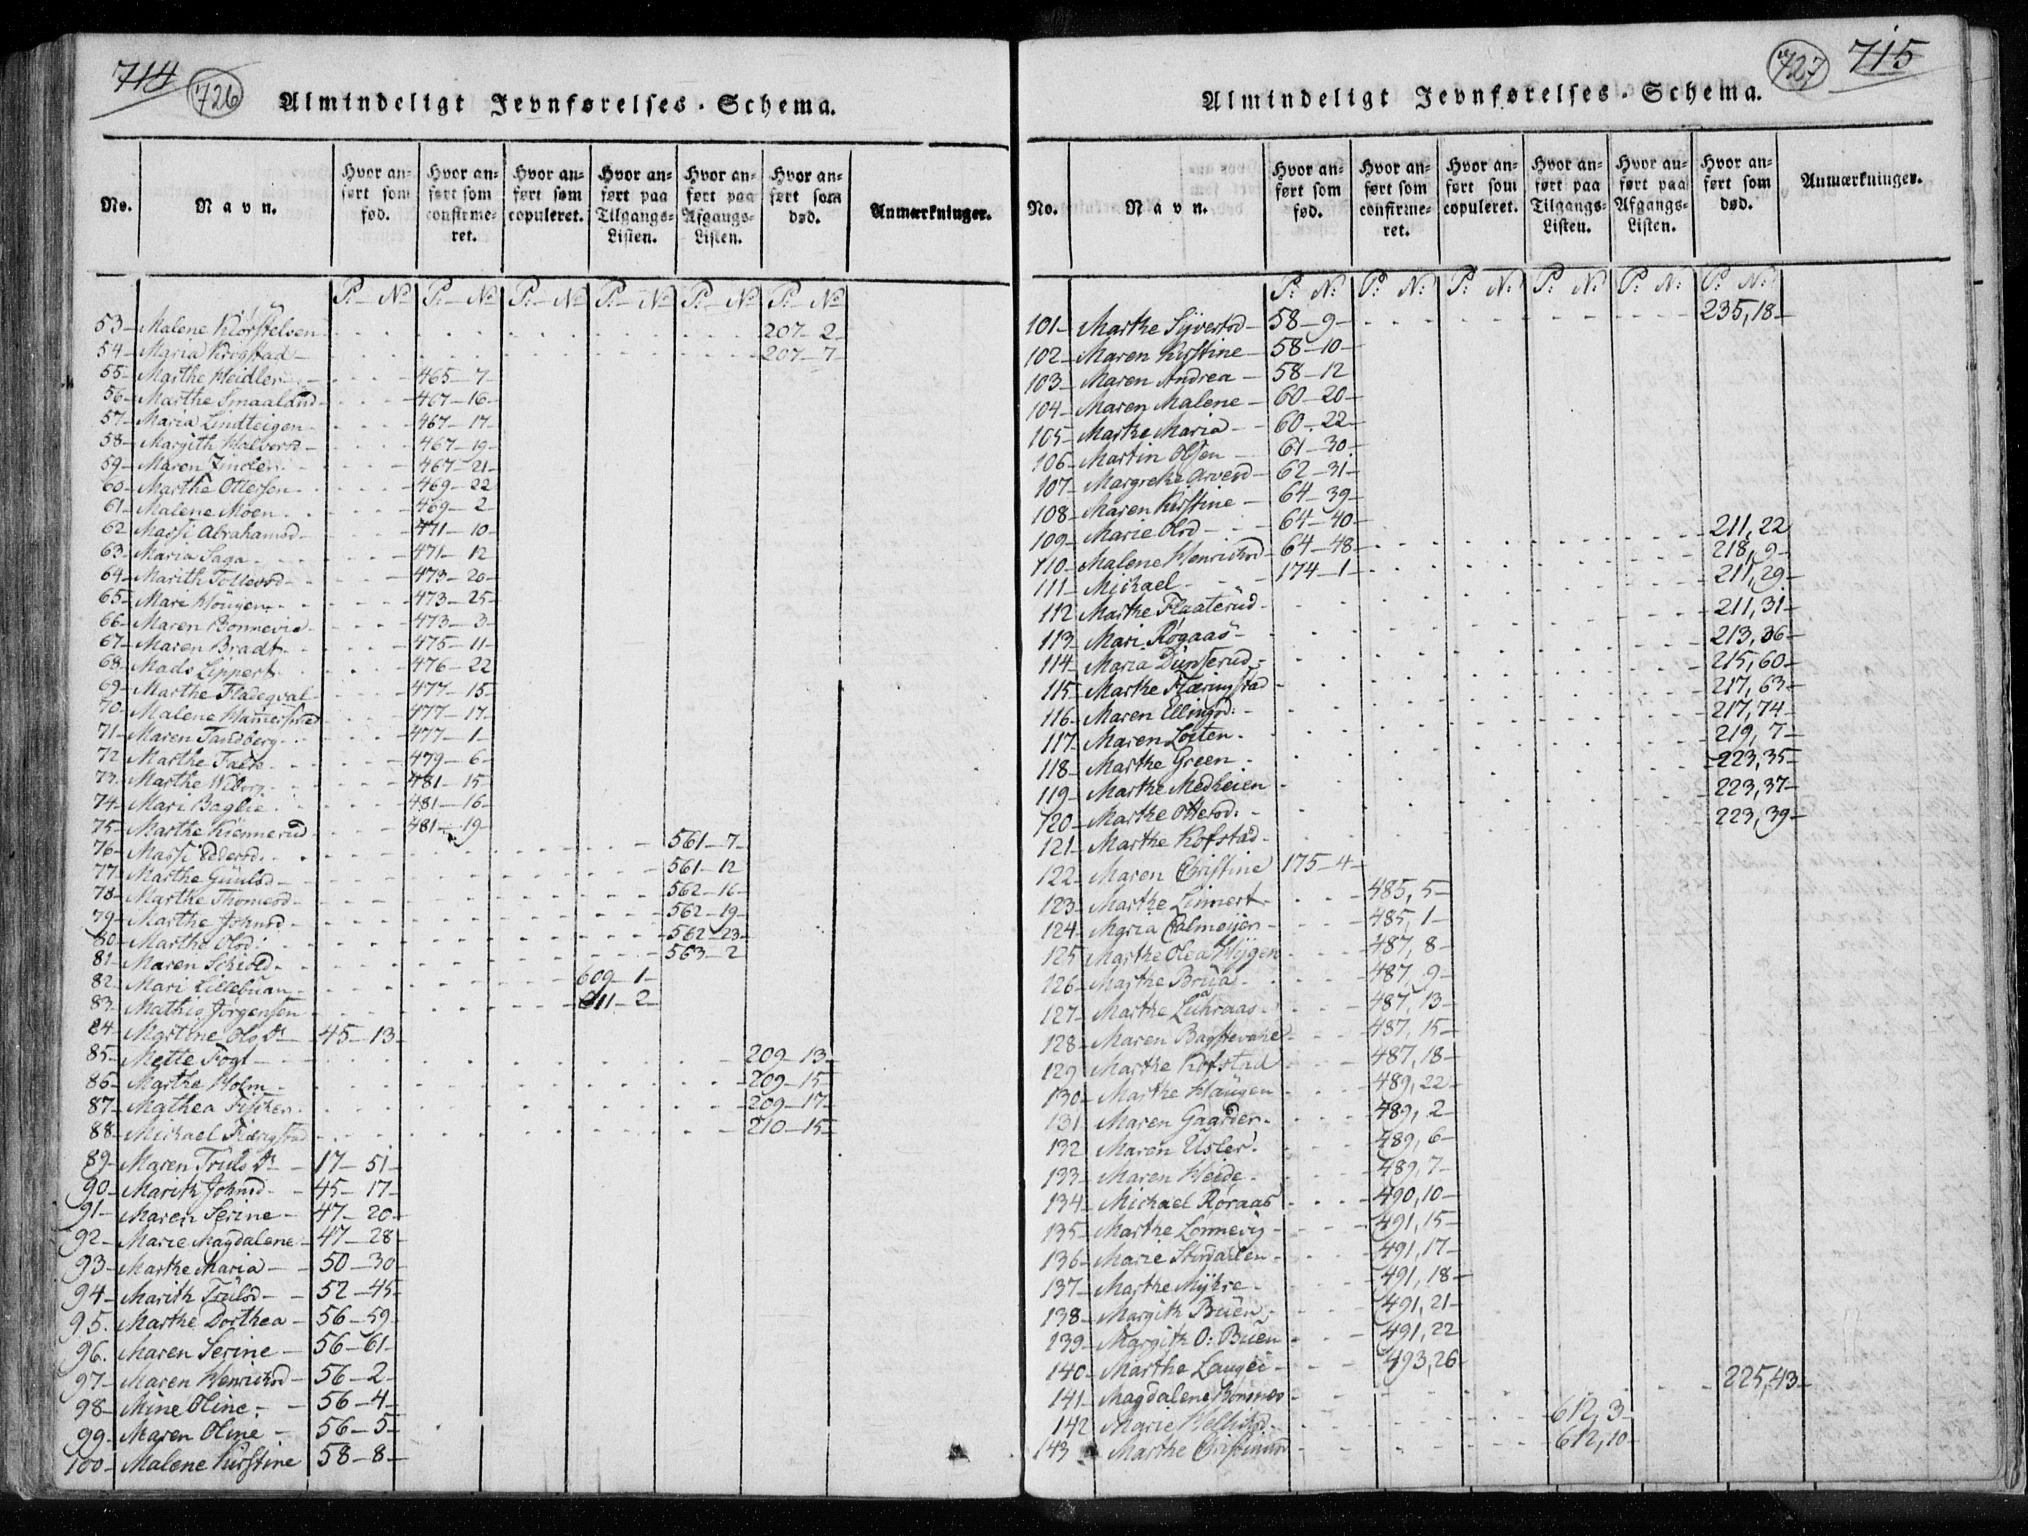 714 726
Almindeligt Jevnførelses-Schema.
No. Navn. Hvor anført som fød. Hvor anført som confirmeret. Hvor anført som copuleret. Hvor anført paa Tilgangs-Listen. Hvor anført paa Afgangs-Listen. Hvor anført som død. Anmærkninger.
P: No P: No P: No P: No P: No P: No
53 Malene 207-2
54 Maria Krogstad 207-7
55 Marthe Heidler 465-7
56 Marthe Smaalund 467-16
57 Maria Lindteigen 467-17
58 Margith Halversd 467-19
59 Maren 467-21
60 Marthe Ottersen 469-22
61 Malene Moen 469-2
62 Massi Abrahamsd 471-10
63 Maria Saga 471-12
64 Marith Tollevsd 473-20
65 Mari Hougen 473-25
66 Maren Bonnevie 473-3
67 Maren Bradt 475-11
68 Mads Lippert 476-22
69 Marthe 477-15
70 Malene 477-17
71 Maren Tandberg 477-1
72 Marthe 479-6
73 Marthe Wiborg 481-15
74 Mari Baglie 481-16
75 Marthe Kiennerud 481-19
76 Massi Pedersd. 561-7
77 Marthe Gunlsd 561-12
78 Marthe Thomesd 562-16
79 Marthe Johnsd 562-19
80 Marthe Olsd: 562-23
81 Maren Schiold 563-2
82 Mari Lillebuan 609-1
83 Mathis Jørgensen 611-2
84 Martine Ols Dr 45-13
85 Mette Fogt 209-13
86 Marthe Holm 209-15
87 Mathea Fischer 209-17
88 Michael 210-15
89 Maren Truls Dr 17-51
90 Marith Johnsd 45-17
91 Maren Serine 47-20
92 Marie Magdalene 47-28
93 Marthe Maria 50-30
94 Marith Trulsd 52-45
95. Marthe Dorthea 56-59
96. Maren Serine 56-61
97 Maren Henrichsd 56-2
98 Mine Oline 56-4
99 Maren Oline 56-5
100 Malene Kirstine 58-8
727 715
Almindeligt Jevnførelses-Schema.
No. Navn. Hvor anført som fød. Hvor anført som confirmeret. Hvor anført som copuleret. Hvor anført paa Tilgangs-Listen. Hvor anført paa Afgangs-Listen. Hvor anført som død. Anmærkninger.
P: N: P: N: P: N: P: N: P: N: P: N:
101 Marthe Syversd 58-9 235,18
102 Maren Kirstine 58-10
103 Maren Andrea 58-12
104 Maren Malene 60-20
105 Marthe Maria 60-22
106 Martin Olsen 61-30
107 Margrethe 62-31
108 Maren Kirstine 64-39
109 Marie Olsd 64-40 211,22
110 Malene Henrichsd 64-48 218,9
111 Michael 174-1 211,29
112 Marthe Flaaterud 211,31
113 Mari Røgaas 213,36
114 Maria Dunserud 215,60
115 Marthe 217,63
116 Maren Ellingsd: 217,74
117 Maren Loiten 219,7
118 Marthe Green 223,35
119 Marthe Medheien 223,37
120 Marthe Ottersd: 223,39
121 Marthe Kofstad
122 Maren Christine 175-4
123 Marthe Linnert 485,5
124 Maria Calmeyer 485,1
125 Marthe Olea Hygen 487,8
126 Marthe Brua 487,9
127 Marthe 487,13
128 Maren 487,15
129 Marthe Kofstad 487,18
130 Marthe Haugen 489,22
131 Maren Gaarder 489,2
132 Maren Usler 489,6
133 Maren Heide 489,7
134 Michael Røraas 490,10
135 Marthe Lonnevig 491,15
136 Marie Stordalen 491,17
137 Marthe Myhre 491,18
138 Margith Buen 491,21
139 Margith O: Buen 491,22
140 Marthe Laugei 493,26
141 Magdalene 225,43
142 Marie 612,3
143 Marthe 612,10